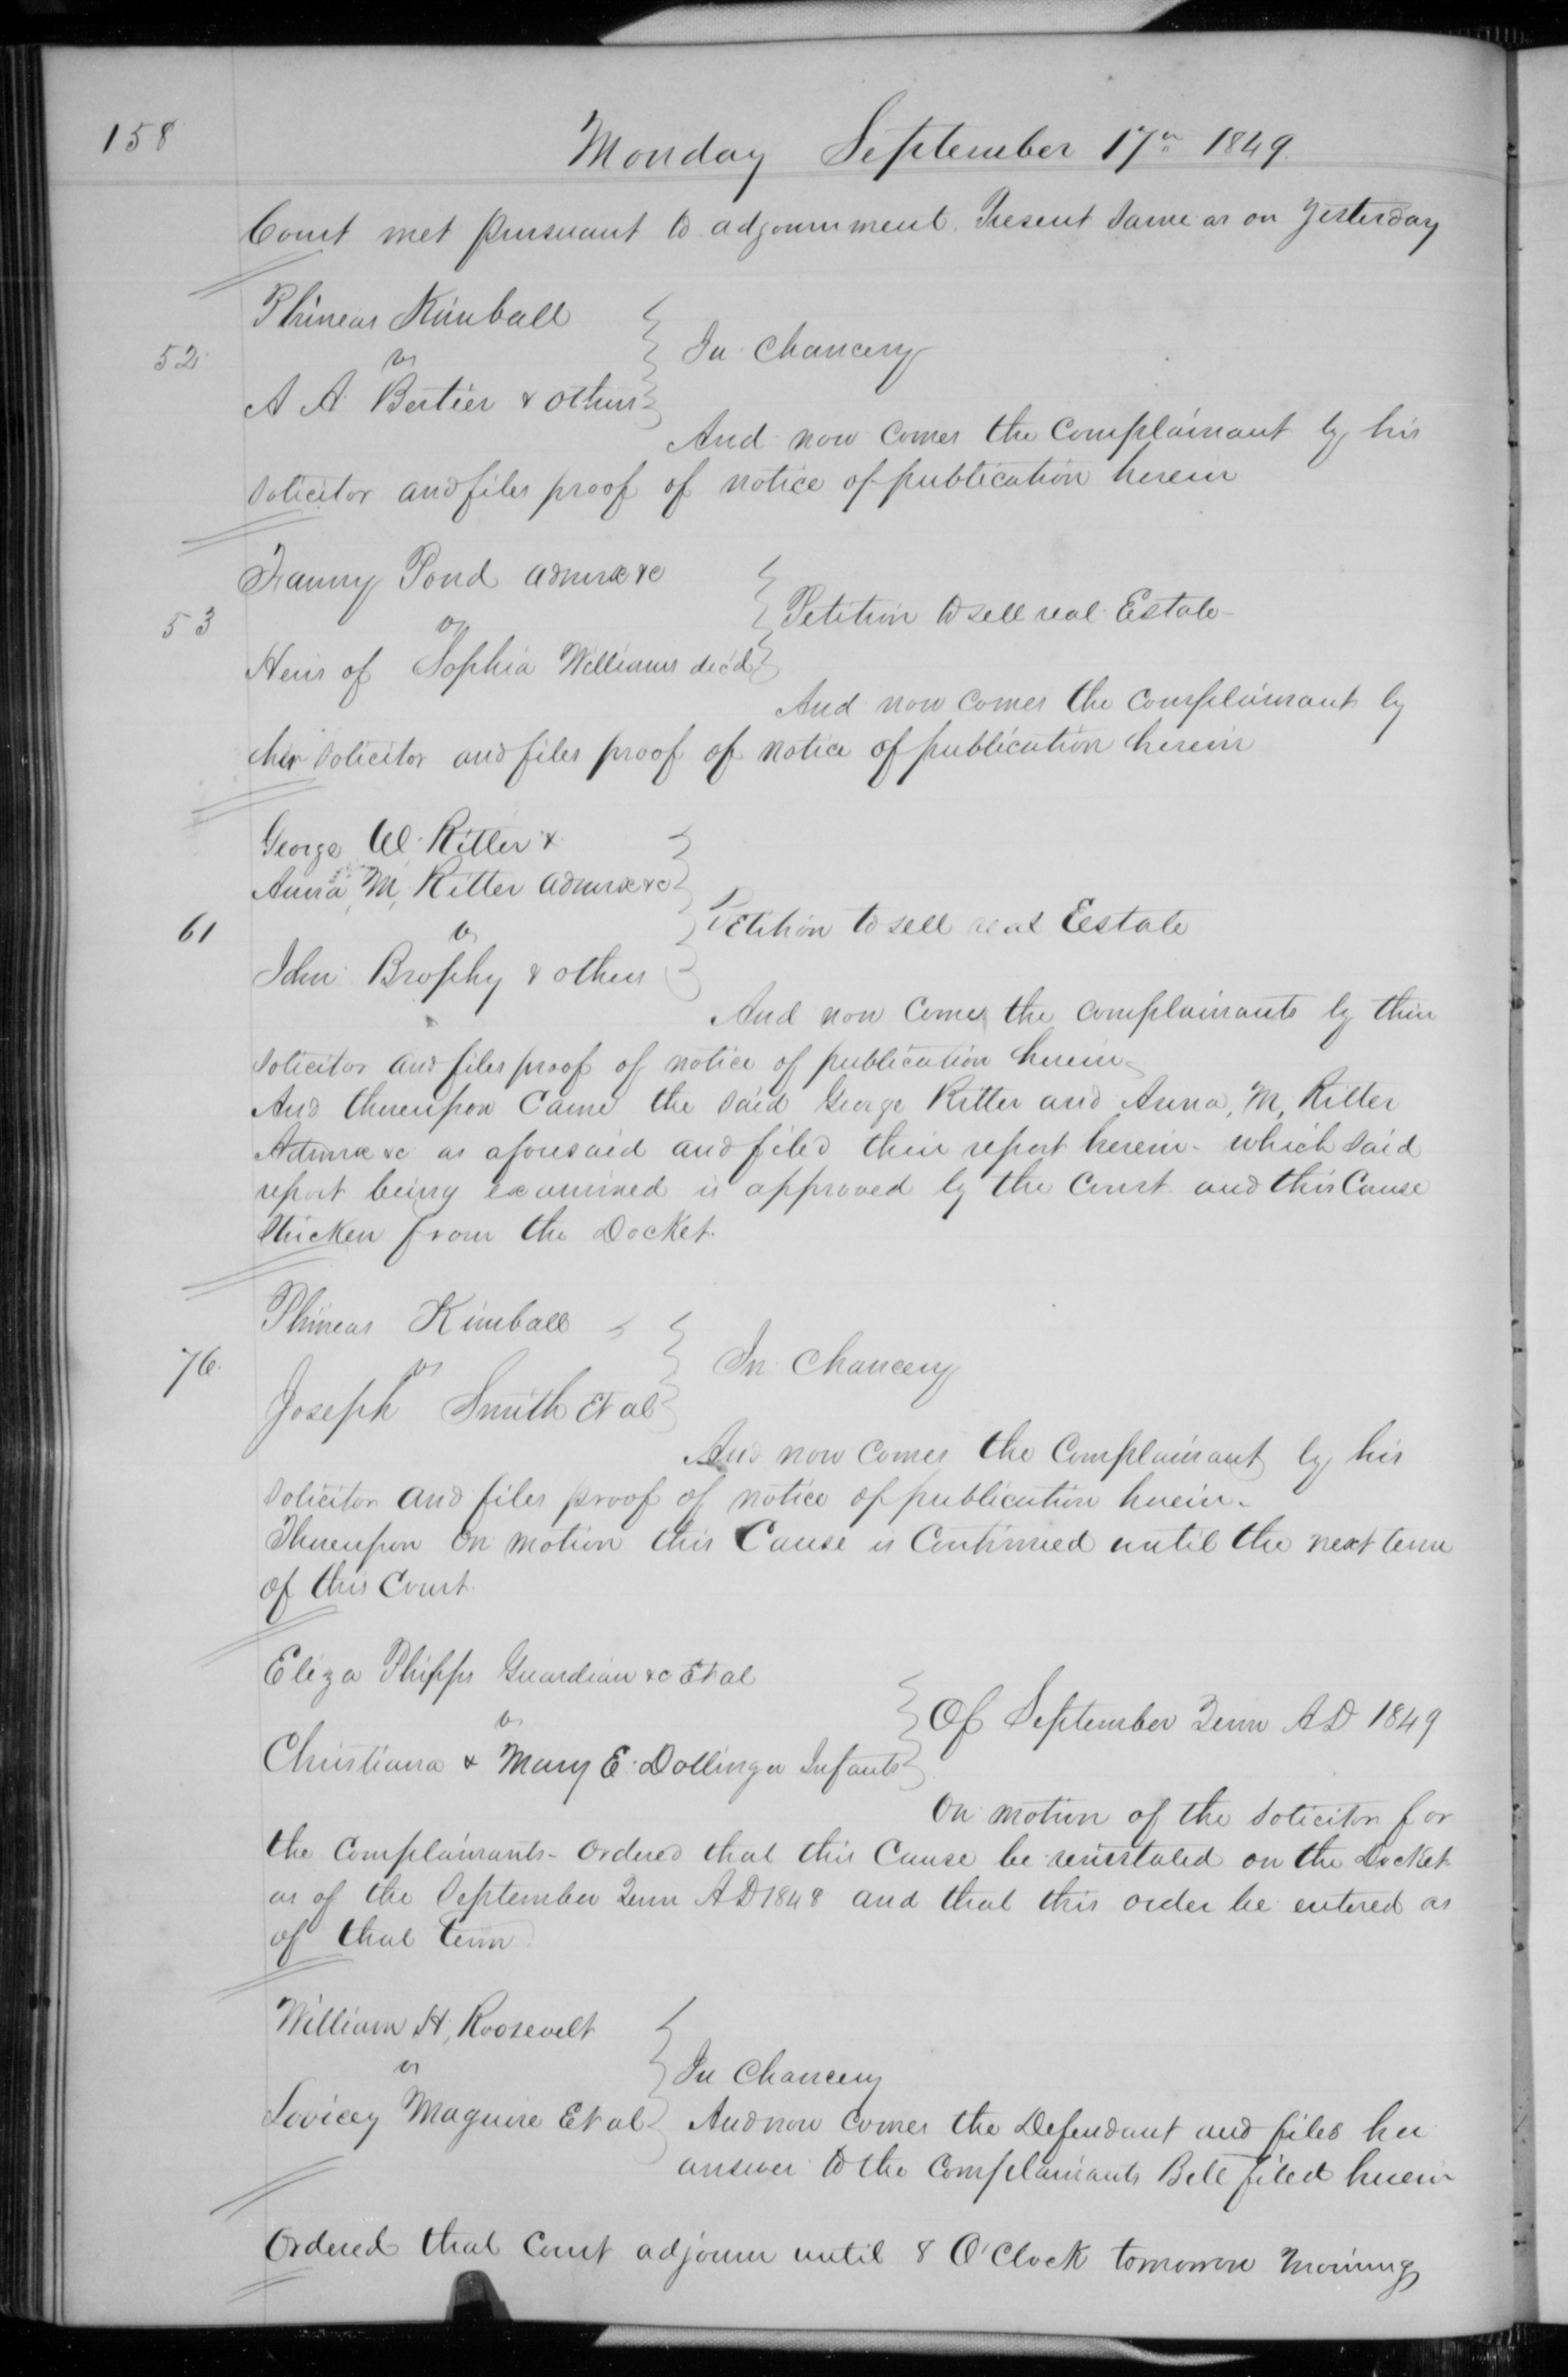 158
Monday September 17th 1849
Court met pursuant to adjournment. Present same as on yesterday
Phineas Kimball
52 vs In Chancery
A A Bertier & others
And now comes the complainant by his
solicitor and files proof of notice of publication herein
Fanny Pond admrx &c
53 vs Petition to sell real Estate
Heirs of Sophia Williams dec'd
And now comes the complainant by
her solicitor and files proof of notice of publication herein
George W. Ritter &
Anna, M, Ritter admrx &c
61 vs Petition to sell real Eestate
John Brophy & others
And now comes the complainants by their
solicitor and files proof of notice of publication herein
And thereupon came the said George Ritter and Anna, M, Ritter
Admrx &c as aforesaid and filed their report herein. which said
report being examined is approved by the Court and this Cause
Stricken from the Docket.
Phineas Kimball
76. vs In Chancery
Joseph Smith Et al
And now comes the Complainant by his
solicitor and files proof of notice of publication herein.
Thereupon On motion this Cause is Continued until the next term
of this Court.
Eliza Phipps Guardian &c Et al
vs Of September Term AD 1849
Christiana & Mary E. Dollinger Infants
On motion of the solicitor for
the Complainants - Ordered that this Cause be reinstated on the Docket
as of the September Term AD 1848 and that this order be entered as
of that term
William H, Roosevelt
vs In Chancery
Lovicey Maguire Et al And now comes the Defendant and files her
answer to the Complainants Bill filed herein
Ordered that Court adjourn until 8 O'Clock tomorrow morning